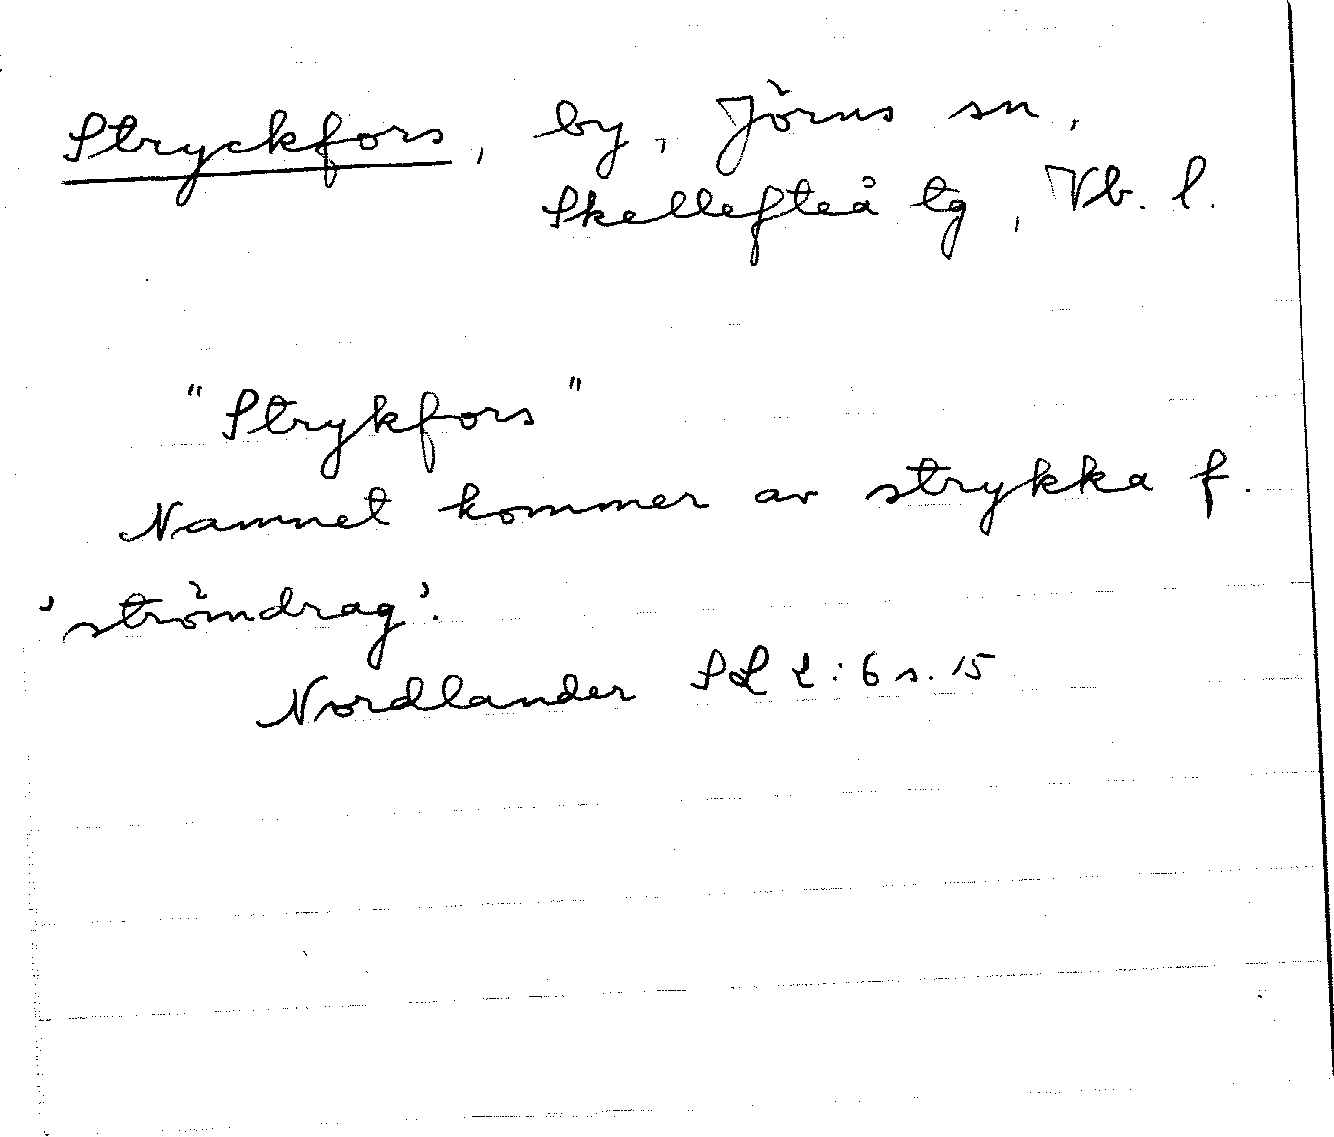 Stryckfors, by, Jörns sn,
Skellefteå tg, Vb. l.
"Strykfors"
Namnet kommer av strykka f.
'strömdrag'.
Nordlander SL 2:6 s. 15